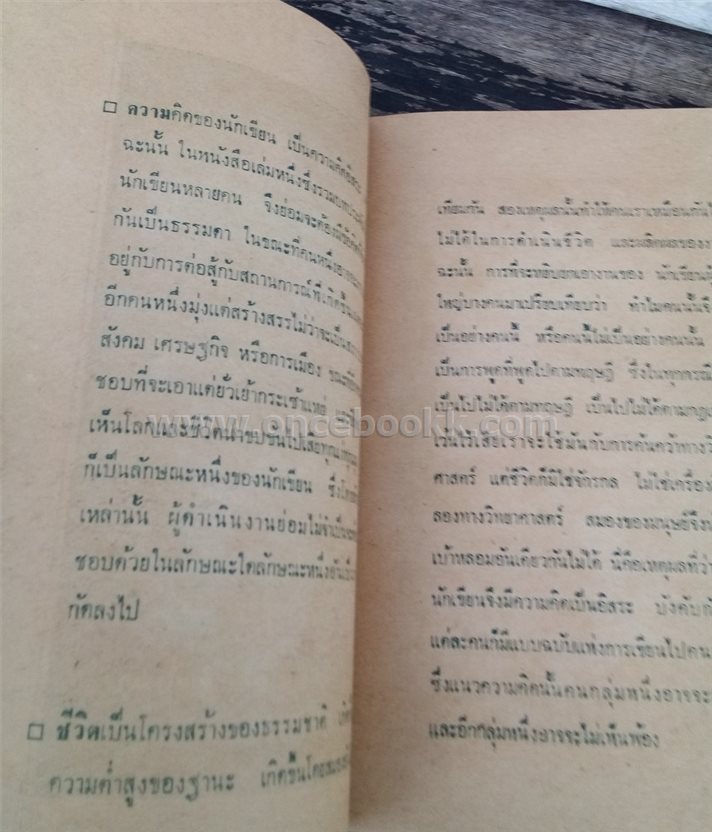 □ ความคิดของนักเขียน เป็นความคิดอิสระ
ฉะนั้น ในหนังสือเล่มหนึ่งซึ่งรวม
นักเขียนหลายคน จึงย่อมจะต้องมี
กันเป็นธรรมดา ในขณะที่คนหนึ่ง
อยู่กับการต่อสู้กับสถานการณ์ที่เกิดขึ้น
อีกคนหนึ่งมุ่งแต่สร้างสรรไม่ว่าจะเป็น
สังคม เศรษฐกิจ หรือการเมือง
ชอบที่จะเอาแต่ยั่วเย้ากระเซ้าแหย่
เห็นโลกและชีวิตน่าขบขันไปเสีย
ก็เป็นลักษณะหนึ่งของนักเขียน
เหล่านั้น ผู้ดำเนินงานย่อมไม่จำเป็น
ชอบด้วยในลักษณะใดลักษณะหนึ่ง
กัดลงไป
□ ชีวิตเป็นโครงสร้างของธรรมชาติ
ความต่ำสูงของฐานะ เกิดขึ้นโดย
เทียมกัน สองเหตุผลนั้นทำให้คนเราเหมือนกัน
ไม่ได้ในการดำเนินชีวิต และผลิตผลของ
ฉะนั้น การที่จะหยิบยกเอางานของ นักเขียน
ใหญ่บางคนมาเปรียบเทียบว่า ทำไมคนนั้น
เป็นอย่างคนนี้ หรือคนนี้ไม่เป็นอย่างคนนั้น
เป็นการพูดที่พูดไปตามทฤษฎี ซึ่งในทุกกรณี
เป็นไปไม่ได้ตามทฤษฎี เป็นไปไม่ได้ตาม
เว้นไว้เสียเราจะใช้มันกับการค้นคว้าทาง
ศาสตร์ แต่ชีวิตก็มิใช่จักรกล ไม่ใช่เครื่อง
ลองทางวิทยาศาสตร์ สมองของมนุษย์จึง
เบ้าหลอมอันเดียวกันไม่ได้ นี่คือเหตุผลที่ว่า
นักเขียนจึงมีความคิดเป็นอิสระ บังคับ
แต่ละคนก็มีแบบฉบับแห่งการเขียนไปคน
ซึ่งแนวความคิดนั้นคนกลุ่มหนึ่งอาจจะ
และอีกกลุ่มหนึ่งอาจจะไม่เห็นพ้อง
www.oncebookk.com